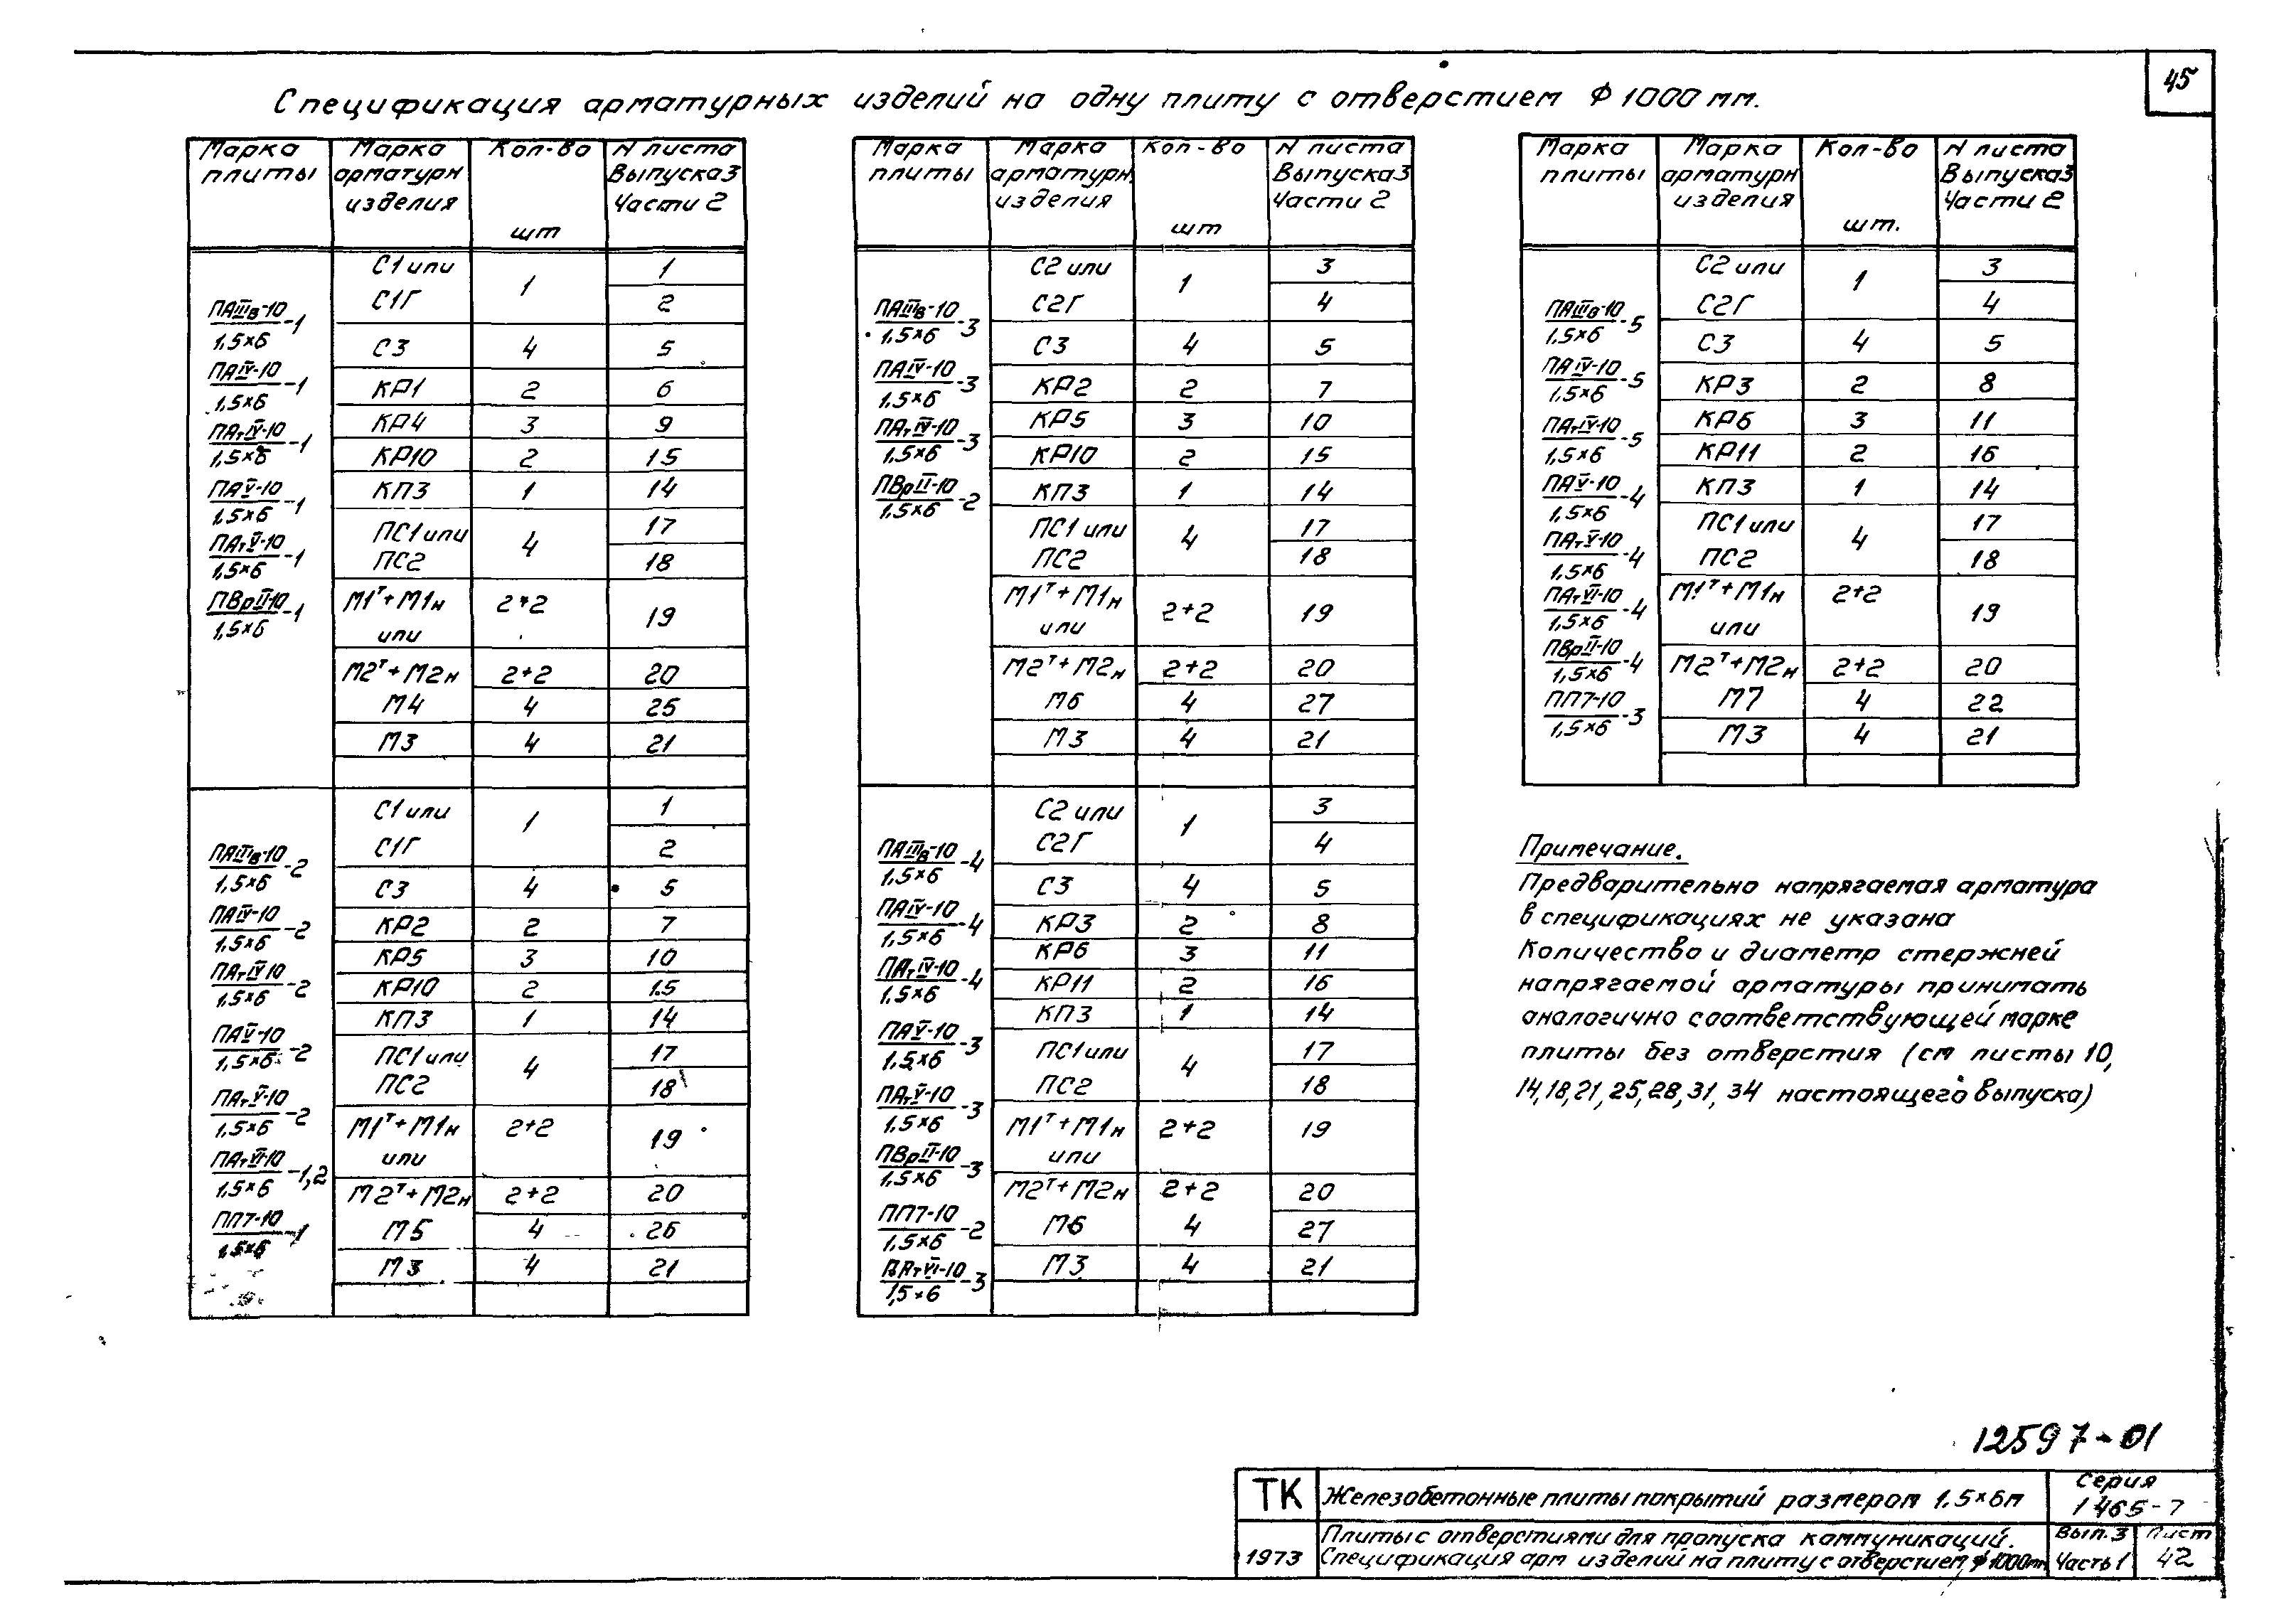 45
Спецификация арматурных изделий на одну плиту с отверстием ф 1000 мм.
Марка плиты | Марка арматурн изделия | Кол-во шт | N листа Выпуска 3 Части 2
ПАIIIв-10/1,5×6 -1
ПАIV-10/1,5×6 -1
ПАтIV-10/1,5×6 -1
ПАV-10/1,5×6 -1
ПАтV-10/1,5×6 -1
ПВрII-10/1,5×6 -1
С1 или | 1 | 1
С1Г | 2
С3 | 4 | 5
КР1 | 2 | 6
КР4 | 3 | 9
КР10 | 2 | 15
КП3 | 1 | 14
ПС1 или | 4 | 17
ПС2 | 18
М1т+М1н или | 2+2 | 19
М2т+М2н | 2+2 | 20
М4 | 4 | 25
М3 | 4 | 21
ПАIIIв-10/1,5×6 -2
ПАIV-10/1,5×6 -2
ПАтIV-10/1,5×6 -2
ПАV-10/1,5×6 -2
ПАтV-10/1,5×6 -2
ПАтVI-10/1,5×6 -1,2
ПП7-10/1,5×6 -1
С1 или | 1 | 1
С1Г | 2
С3 | 4 | 5
КР2 | 2 | 7
КР5 | 3 | 10
КР10 | 2 | 15
КП3 | 1 | 14
ПС1 или | 4 | 17
ПС2 | 18
М1т+М1н или | 2+2 | 19
М2т+М2н | 2+2 | 20
М5 | 4 | 26
М3 | 4 | 21
Марка плиты | Марка арматурн. изделия | Кол-во шт | N листа Выпуска 3 Части 2
ПАIIIв-10/1,5×6 -3
ПАIV-10/1,5×6 -3
ПАтIV-10/1,5×6 -3
ПВрII-10/1,5×6 -2
С2 или | 1 | 3
С2Г | 4
С3 | 4 | 5
КР2 | 2 | 7
КР5 | 3 | 10
КР10 | 2 | 15
КП3 | 1 | 14
ПС1 или | 4 | 17
ПС2 | 18
М1т+М1н или | 2+2 | 19
М2т+М2н | 2+2 | 20
М6 | 4 | 27
М3 | 4 | 21
ПАIIIв-10/1,5×6 -4
ПАIV-10/1,5×6 -4
ПАтIV-10/1,5×6 -4
ПАV-10/1,5×6 -3
ПАтV-10/1,5×6 -3
ПВрII-10/1,5×6 -3
ПП7-10/1,5×6 -2
ПАтVI-10/1,5×6 -3
С2 или | 1 | 3
С2Г | 4
С3 | 4 | 5
КР3 | 2 | 8
КР6 | 3 | 11
КР11 | 2 | 16
КП3 | 1 | 14
ПС1 или | 4 | 17
ПС2 | 18
М1т+М1н или | 2+2 | 19
М2т+М2н | 2+2 | 20
М6 | 4 | 27
М3 | 4 | 21
Марка плиты | Марка арматурн изделия | Кол-во шт. | N листа Выпуска 3 Части 2
ПАIIIв-10/1,5×6 -5
ПАIV-10/1,5×6 -5
ПАтIV-10/1,5×6 -5
ПАV-10/1,5×6 -4
ПАтV-10/1,5×6 -4
ПАтVI-10/1,5×6 -4
ПВрII-10/1,5×6 -4
ПП7-10/1,5×6 -3
С2 или | 1 | 3
С2Г | 4
С3 | 4 | 5
КР3 | 2 | 8
КР6 | 3 | 11
КР11 | 2 | 16
КП3 | 1 | 14
ПС1 или | 4 | 17
ПС2 | 18
М1т+М1н или | 2+2 | 19
М2т+М2н | 2+2 | 20
М7 | 4 | 22
М3 | 4 | 21
Примечание.
Предварительно напрягаемая арматура
в спецификациях не указана
Количество и диаметр стержней
напрягаемой арматуры принимать
аналогично соответствующей марке
плиты без отверстия (см листы 10,
14,18,21,25,28,31,34 настоящего выпуска)
12597-01
ТК
Железобетонные плиты покрытий размером 1.5×6м
Серия
1 465-7
1973
Плиты с отверстиями для пропуска коммуникаций.
Спецификация арм изделий на плиту с отверстием ф 1000мм
Вып.3
Часть 1
Лист
42